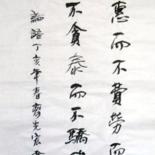 惠而不費勞而
不貪泰而不驕
論語丁亥年春